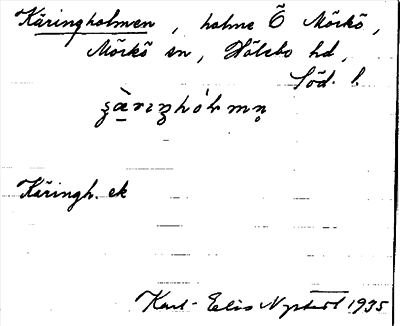 Käringholmen, holme Ö Mörkö,
Mörkö sn, Hölebo hd,
Söd. l.
Käringh. ek
Karl-Elis Nystedt 1935